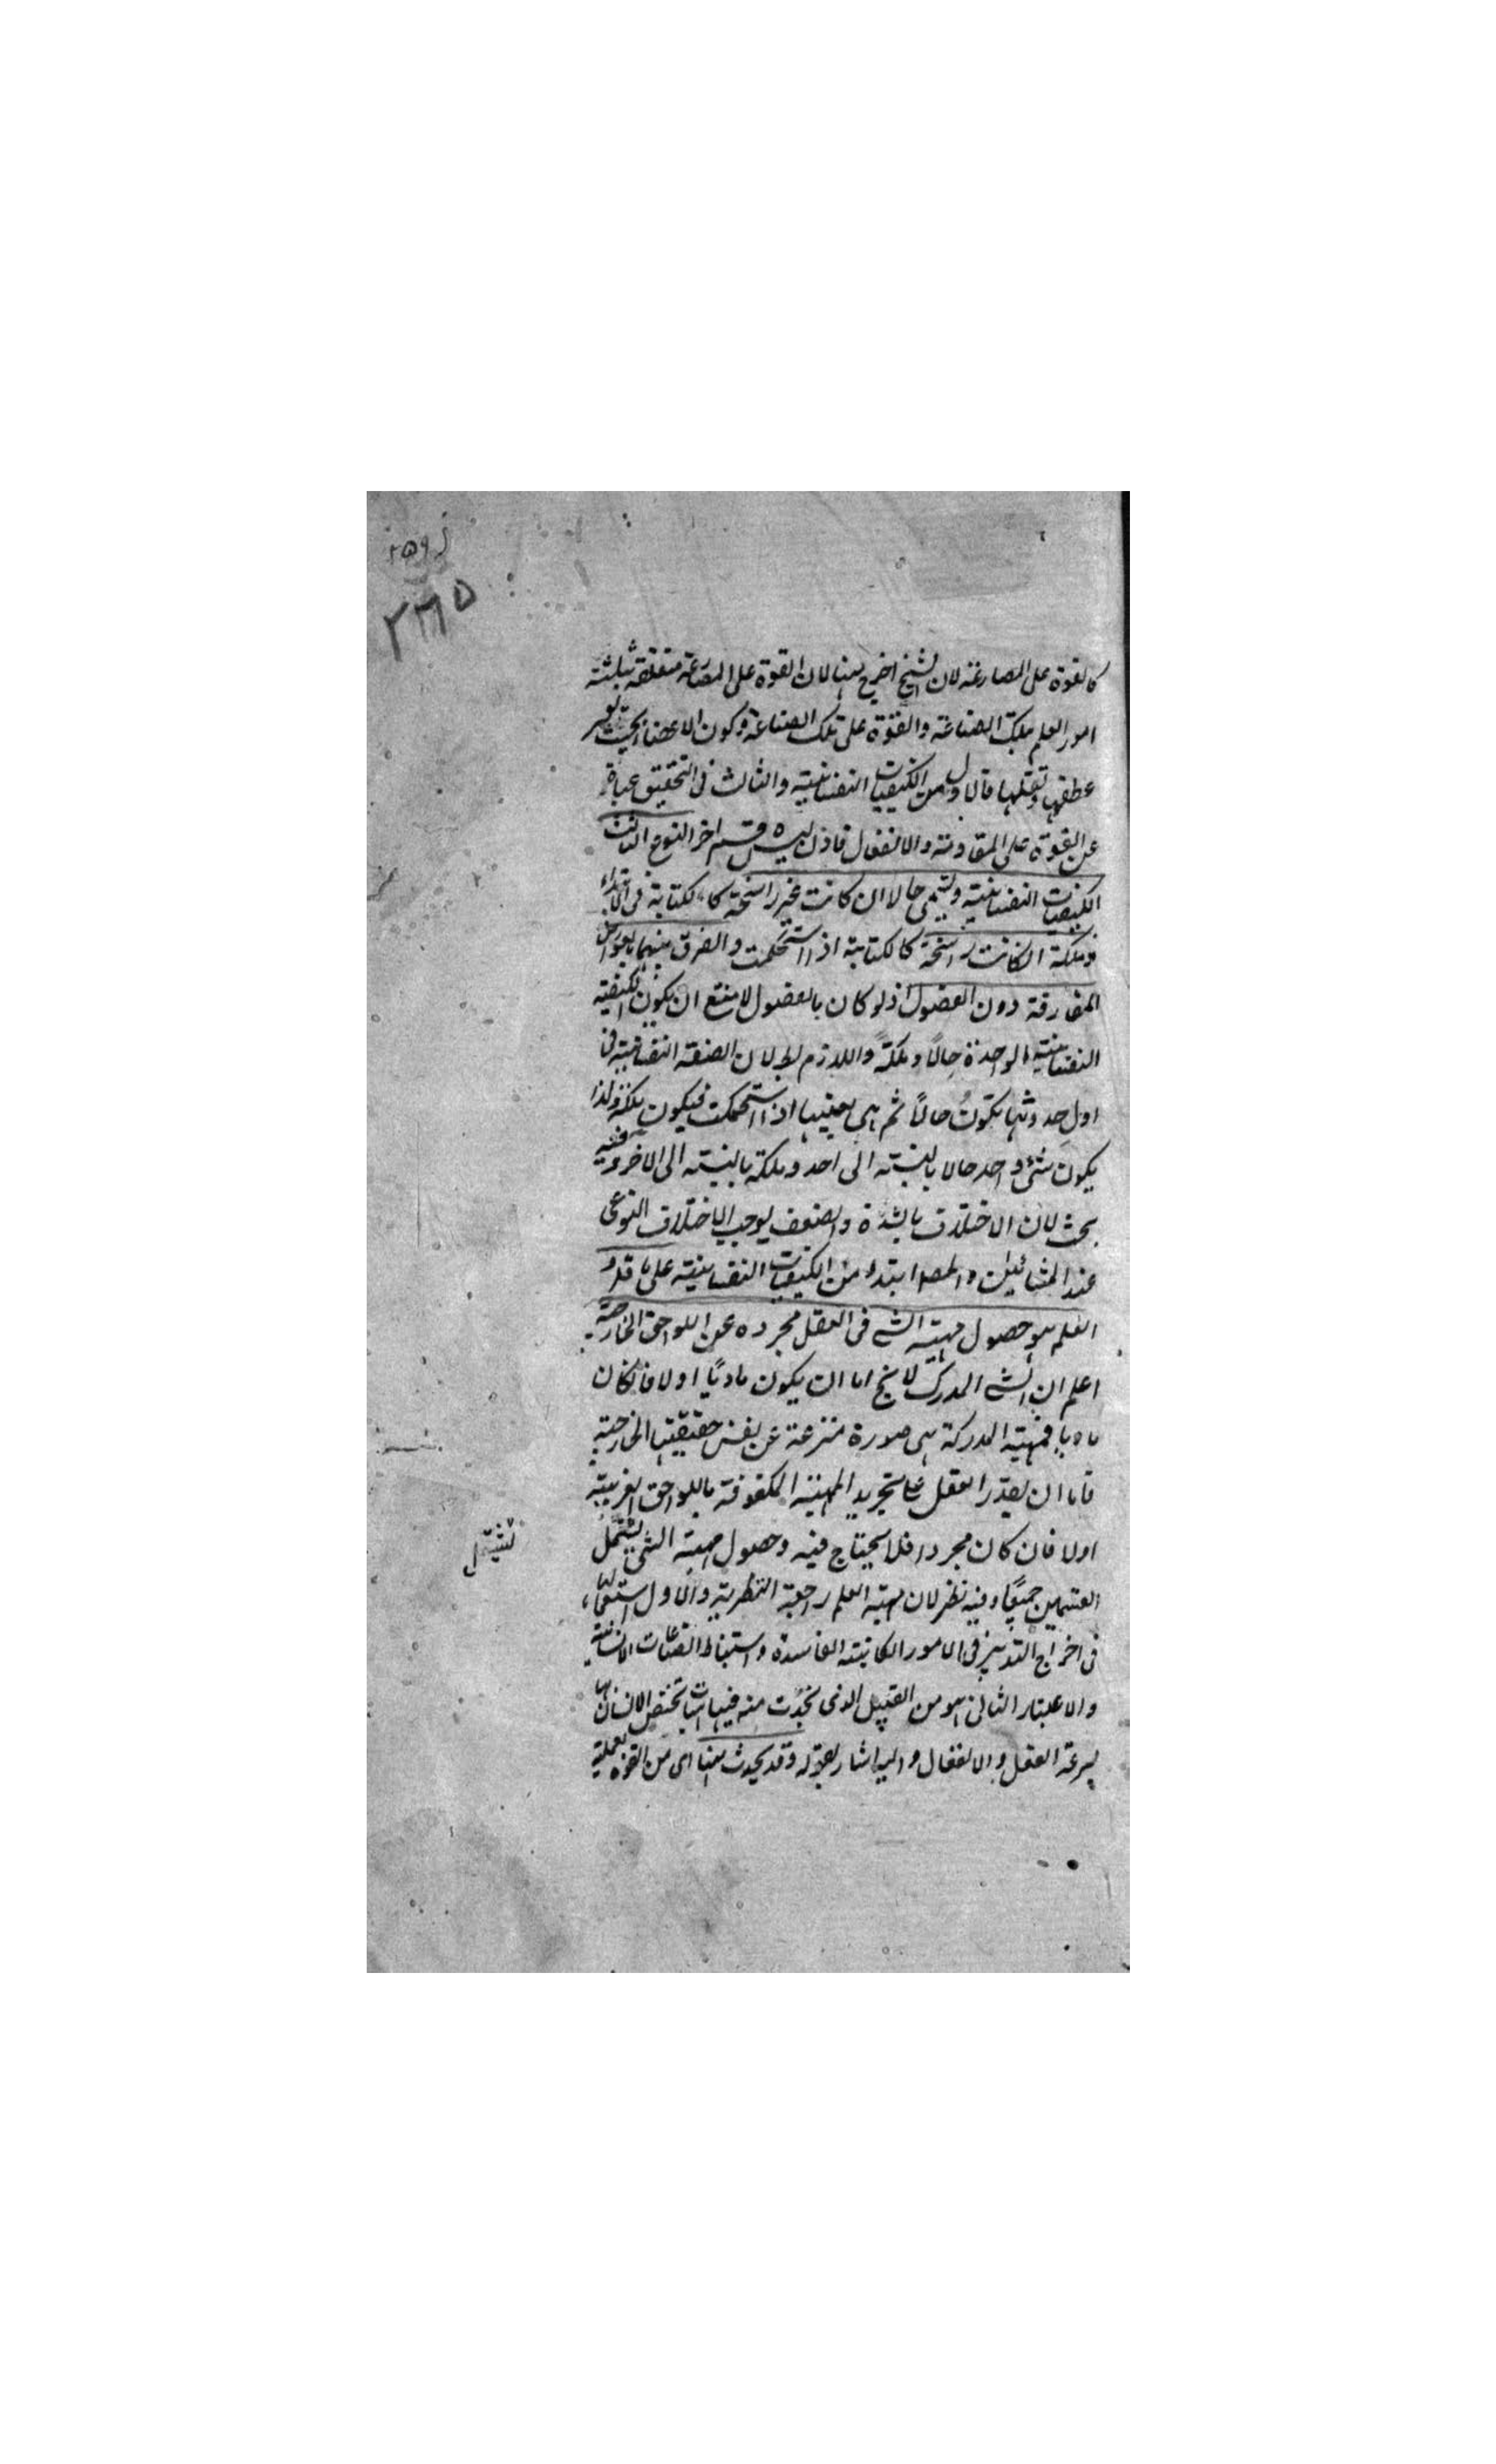 ٣٦٥
كالقوة على المصارعة لان الشيخ اخرج ههنا لان القوة على المصارعة متعلقة بثلثة
امور العلم بتلك الصناعة والقوة على تلك الصناعة وكون الاعضاء بحيث يعسر
عطفها ونقلها فالاول من الكيفيات النفسانية والثالث في التحقيق عبارة
عن القوة على المقاومة والانفعال فاذن ليس قسم اخر النوع الثالث
الكيفيات النفسانية ويسمى حالا ان كانت غير راسخة كالكتابة في الابتداء
وملكة ان كانت راسخة كالكتابة اذا استحكمت والفرق بينهما بالعوارض
المفارقة دون الفصول اذ لو كان بالفصول لامتنع ان يكون الكيفية
النفسانية الواحدة حالاً وملكةً واللازم بط لان الصفة النفسانية في
اول حدوثها يكون حالاً ثم هي بعينها اذا استحكمت فيكون ملكة ولذا
يكون شئ واحد حالا بالنسبة الى احد وملكة بالنسبة الى الاخر وفيه
بحث لان الاختلاف بالشدة والضعف يوجب الاختلاف النوعى
عند المشائين والمص ابتدء من الكيفيات النفسانية على ما قدم
العلم هو حصول مهية الشئ في العقل مجردة عن اللواحق الخارجة
اعلم ان الشئ المدرك لا يخ اما ان يكون ماديًا اولا فان كان
ماديا فمهية المدركة هى صورة منتزعة عن نفس حقيقتها الخارجية
فاما ان يقدر العقل على تجريد المهية المكفوفة باللواحق الغريبة
اولا فان كان مجردا فلا يحتاج فيه وحصول مهية الشئ يشتمل
تشتمل
القسمين جميعًا وفيه نظر لان مهية العلم راجعة النظرية والاول استعمالها
في اخراج التدبير في الامور الكائنة الفاسدة واستنباط الصناعات الانسانية
والاعتبار الثانى هو من القبيل الذى تحدث منه فيها هيئات تختص الانسان بها
بسرعة الفعل والانفعال واليه اشار بقوله وقد يحدث ههنا اى من القوة العملية